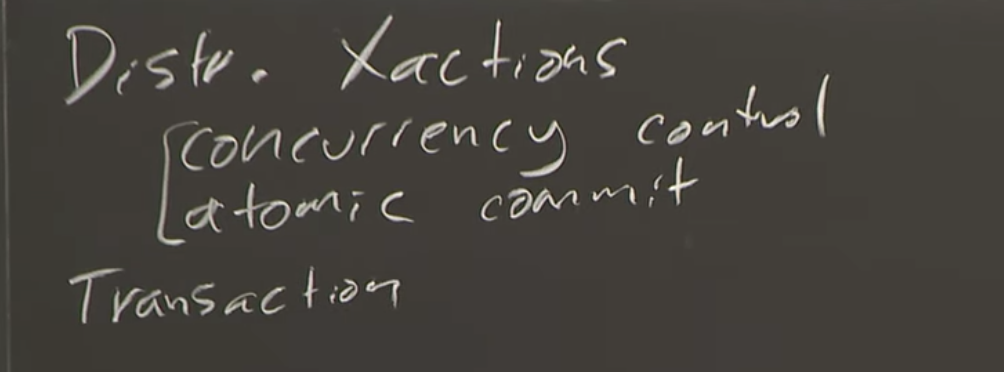 Distr. Xactions
concurrency control
atomic commit
Transaction